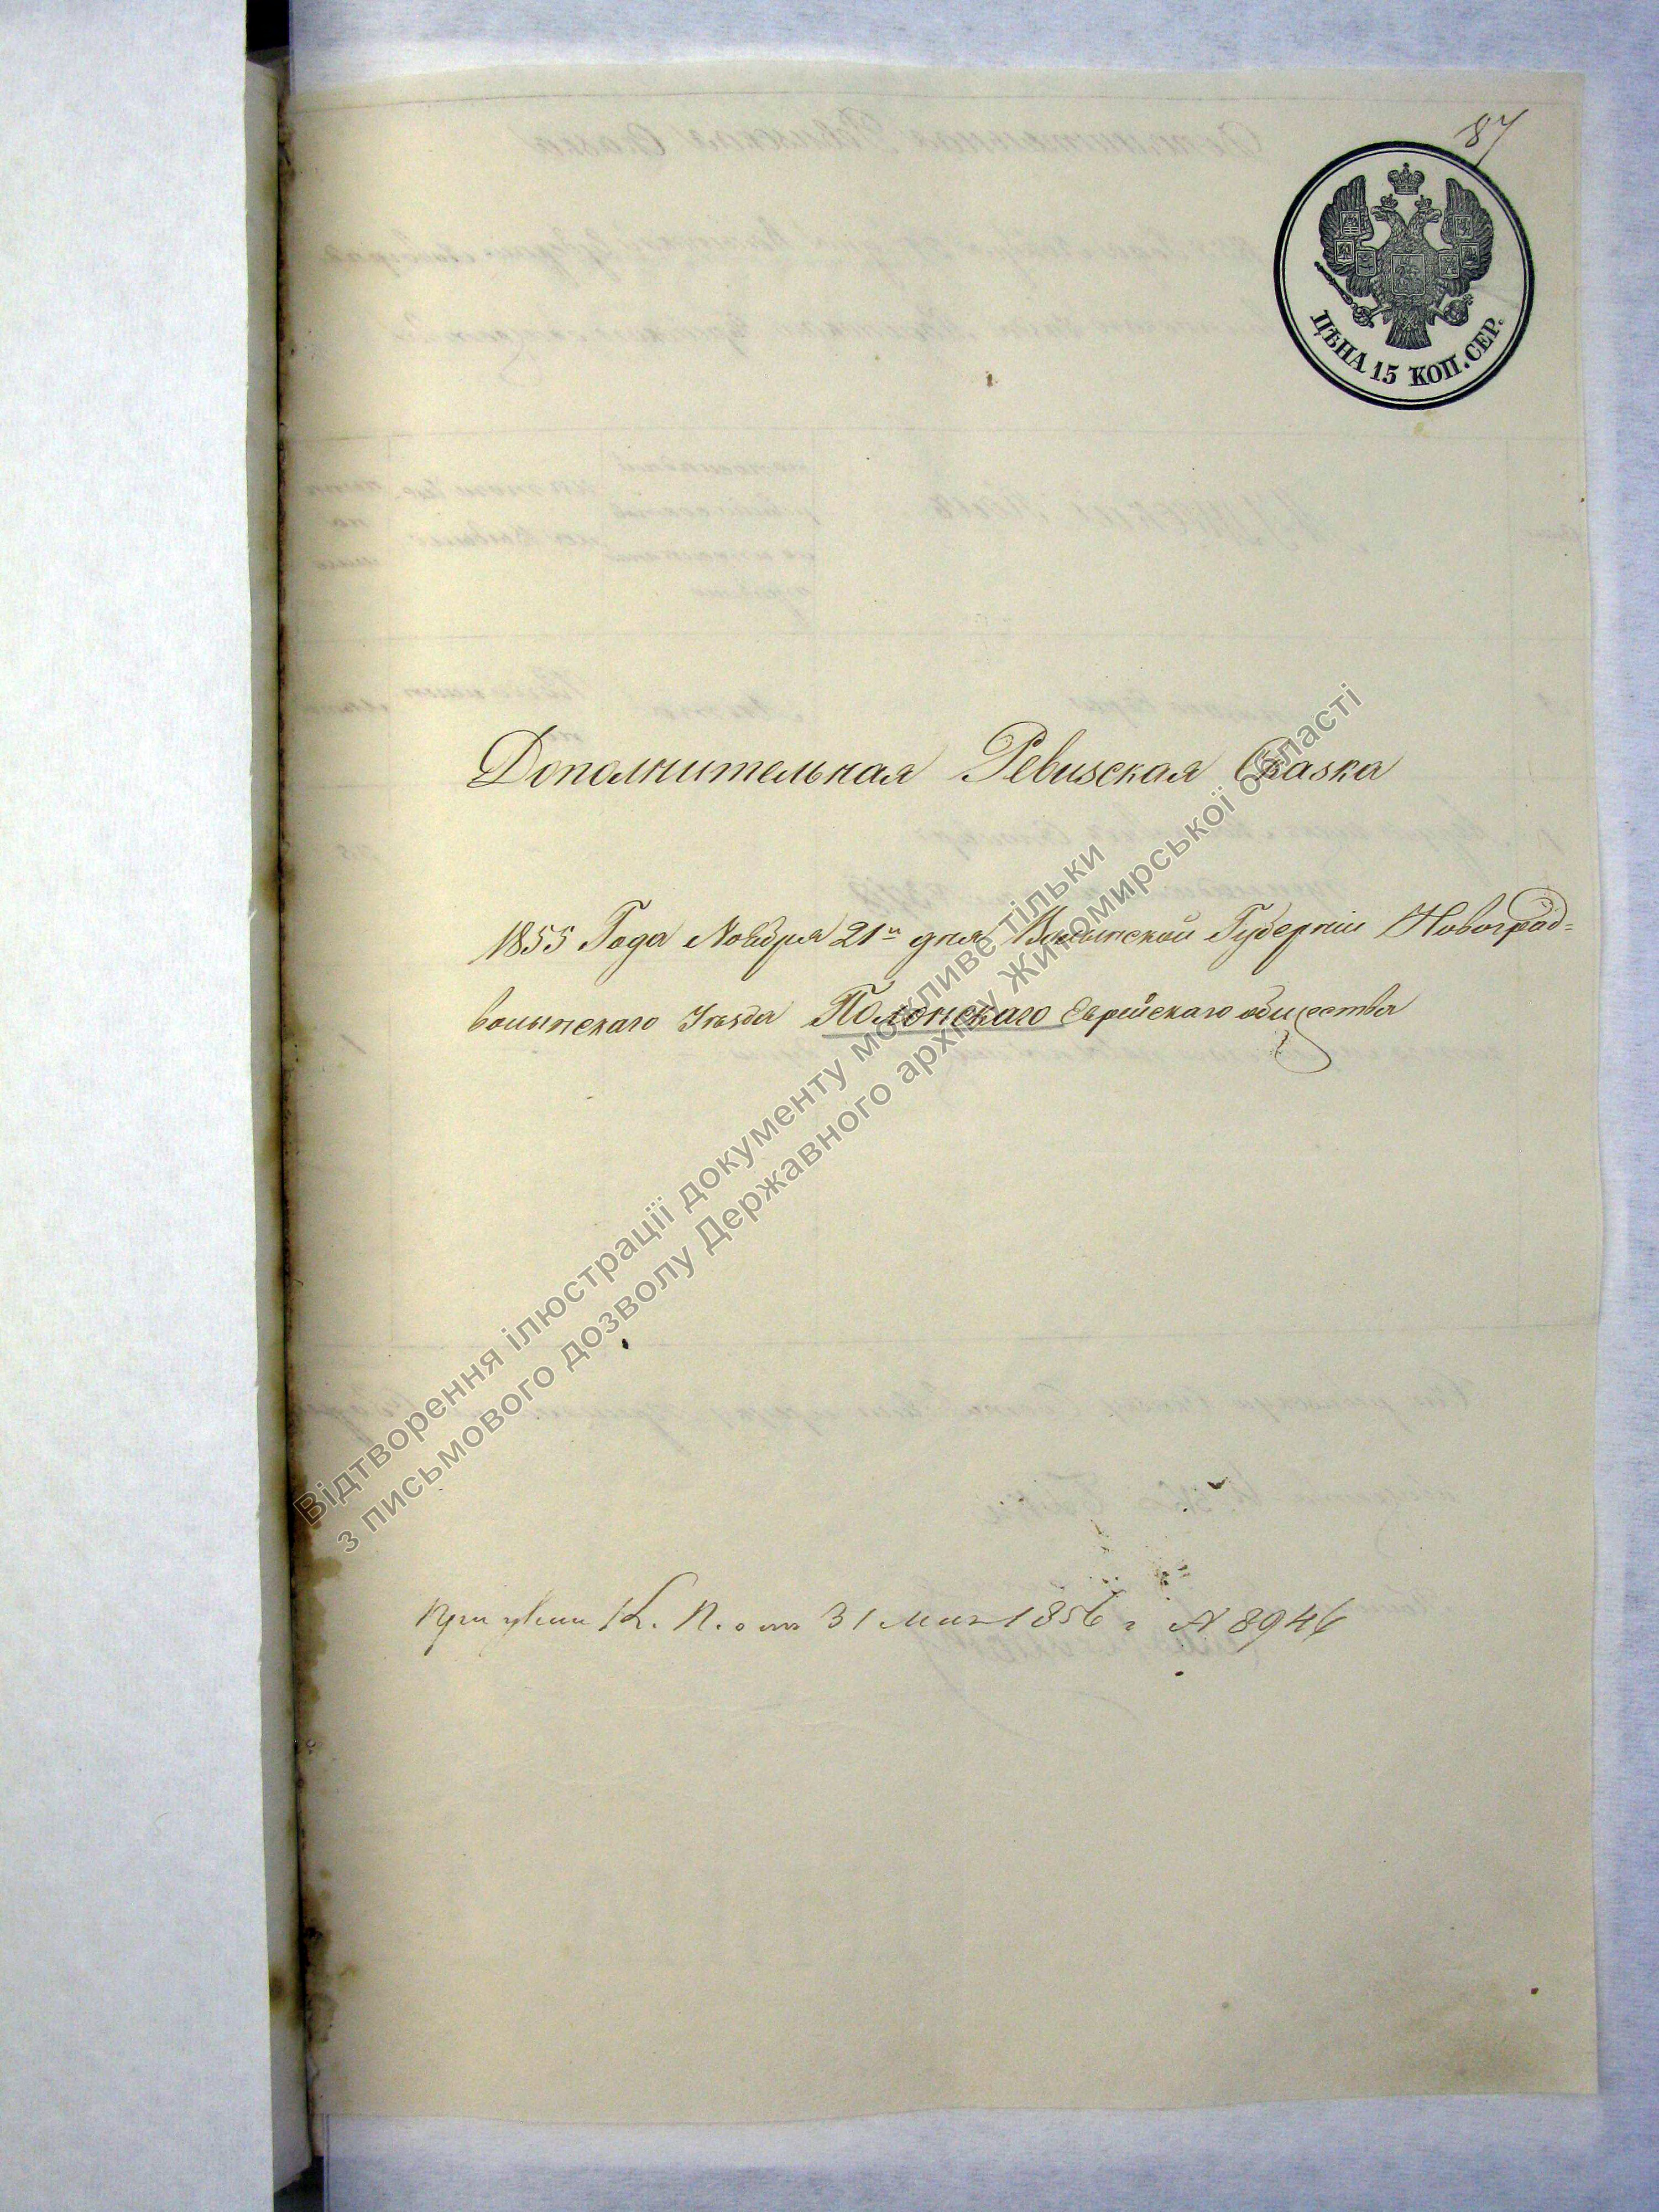 87
ЦѢНА 15 КОП. СЕР.
Дополнительная Ревизская Сказка
1855 Года Ноября 21го дня Волынской Губерніи Новоград=
волынскаго Уѣзда Полонскаго Еврейскаго общества
При К. П. отъ 31 Мая 1856 г № 8946
Відтворення ілюстрації документу можливе тільки
з письмового дозволу Державного архіву Житомирської області